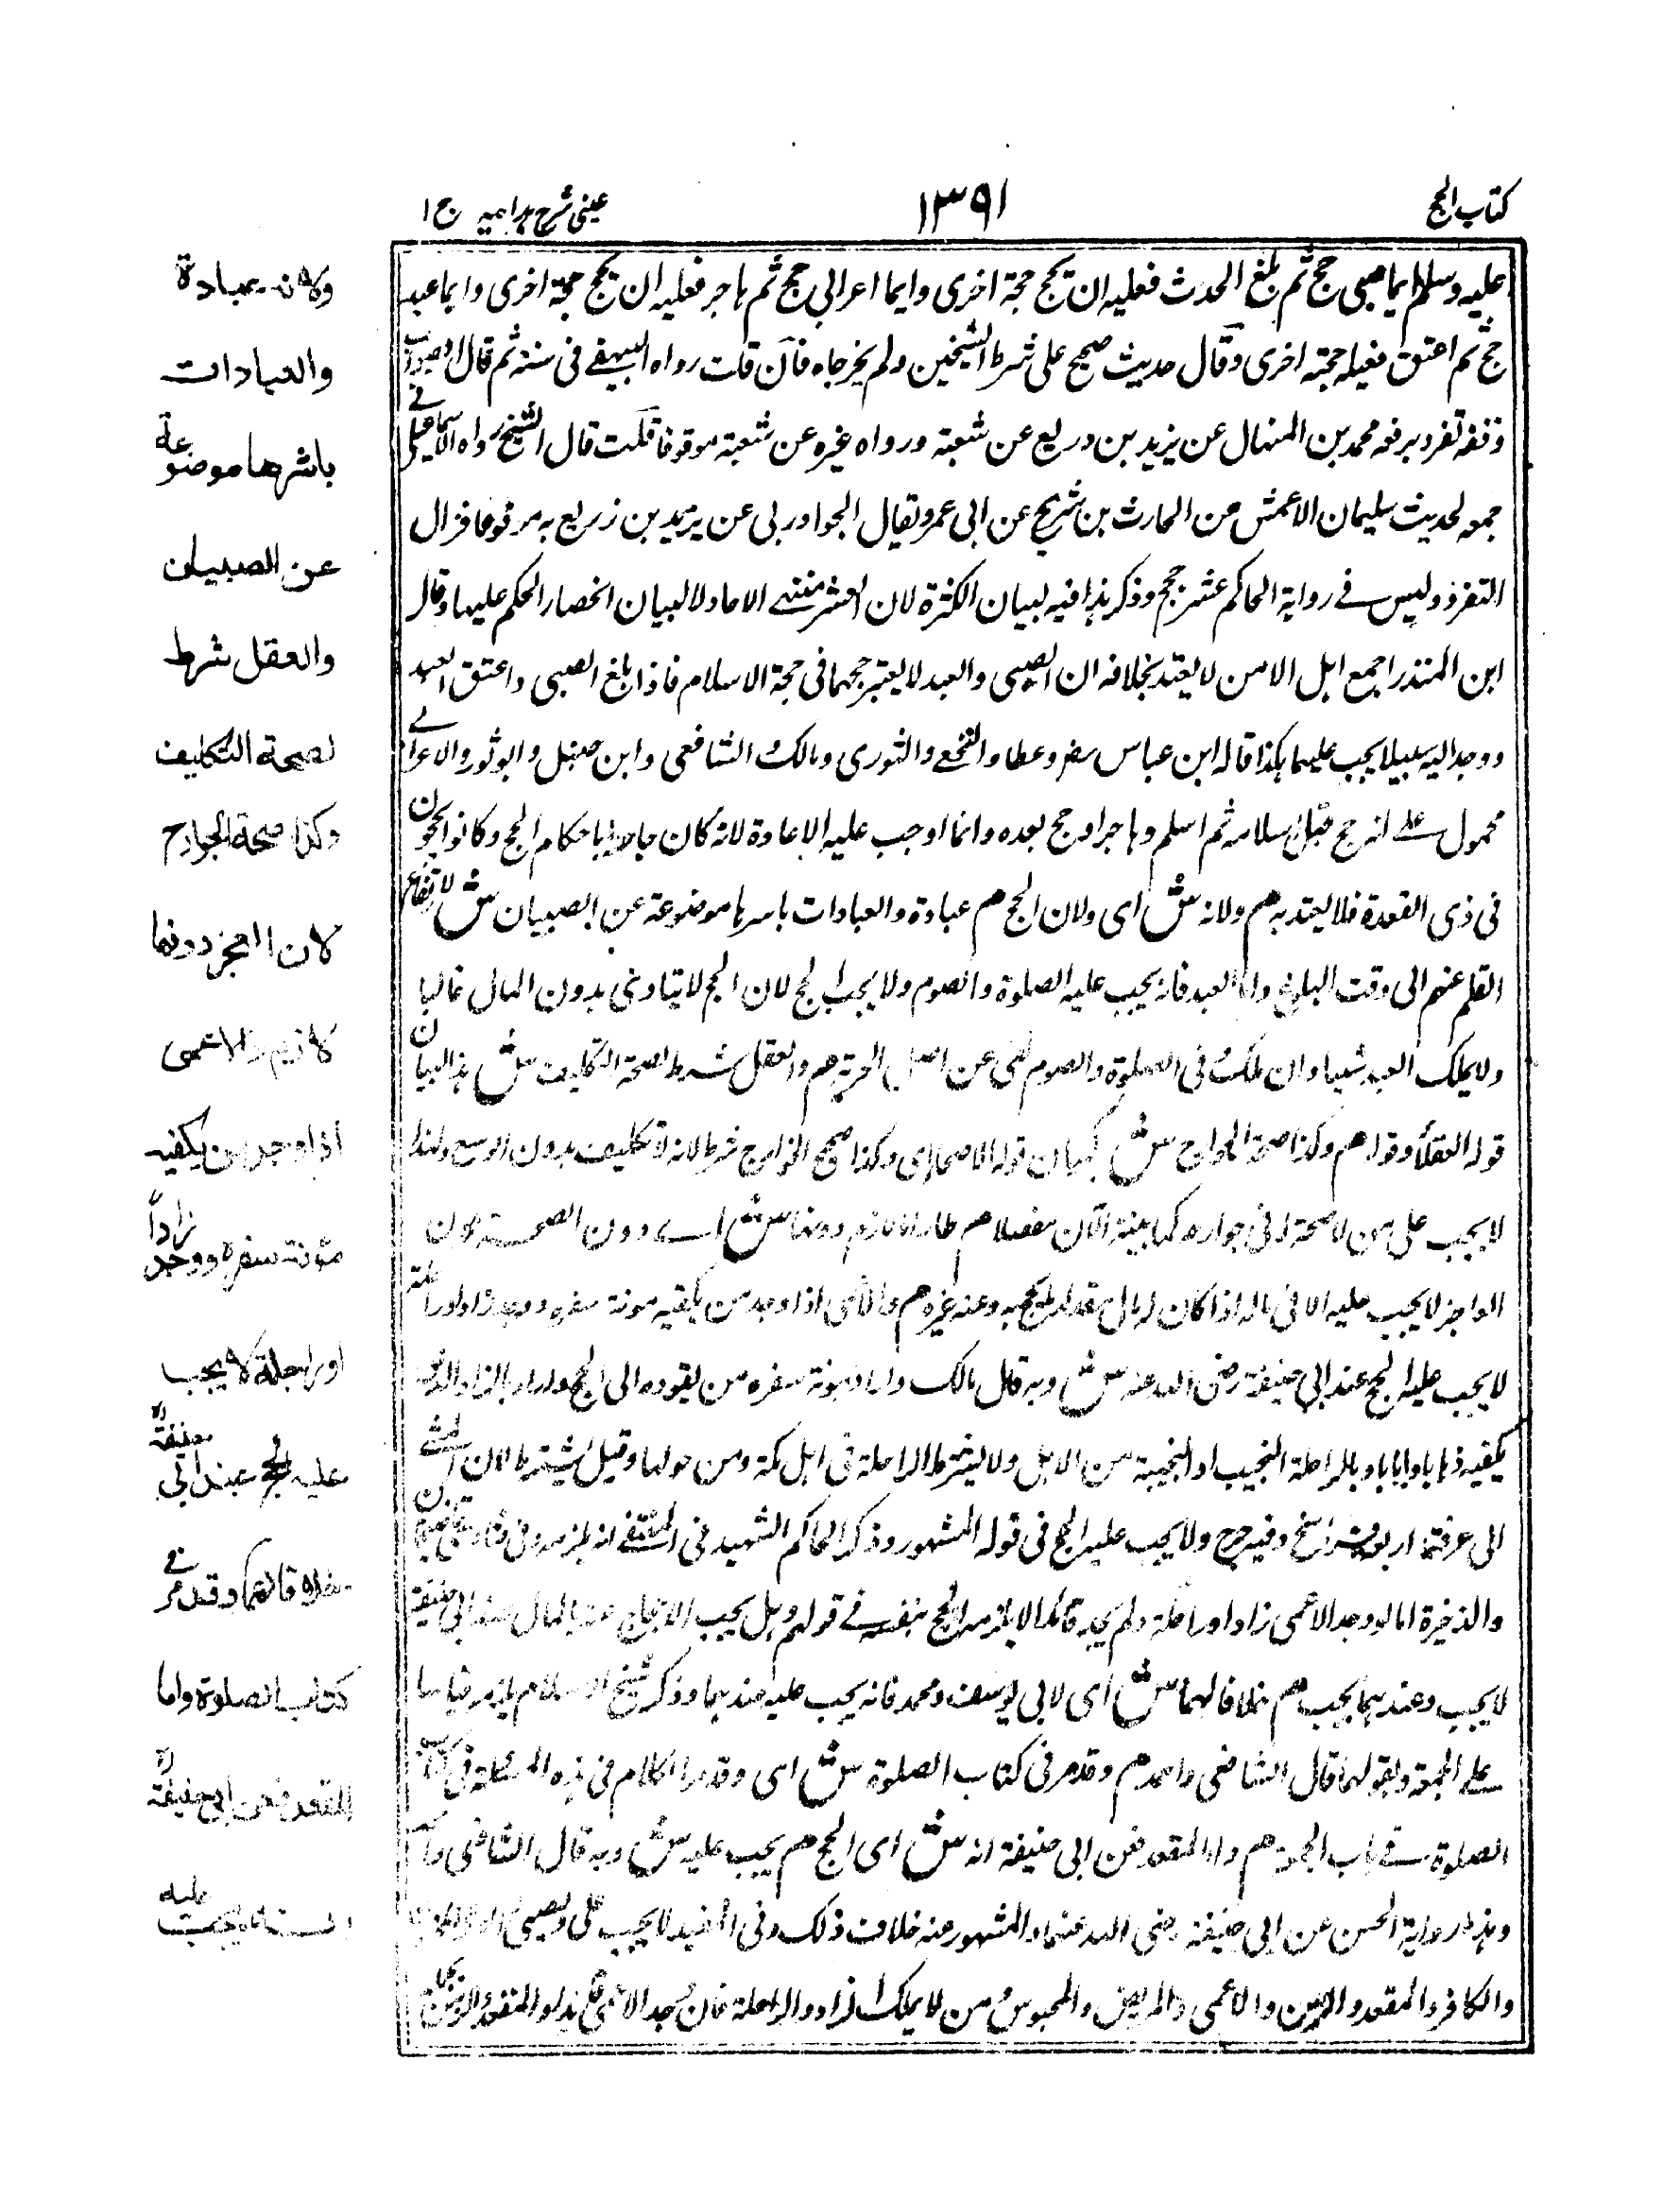 كتاب الحج
١٣٩١
عينى شرح هدايه ج ١
عليه وسلم ايما صبى حج ثم بلغ الحدث فعليه ان يحج حجة اخرى وايما اعرابي حج ثم هاجر فعليه ان يحج حجة اخرى وايما عبد
حج ثم اعتق فعليه حجة اخرى وقال حديث صحيح على شرط الشيخين ولم يخرجاه فان قلت رواه البيهقى فى سننه ثم قال
وقفه تفرد برفعه محمد بن المنهال عن يزيد بن دريع عن شعبة ورواه غيره عن شعبة موقوفا قلت قال الشيخ رواه الاسماعيلى فى
جمعه لحديث سليمان الاعمش عن الحارث بن شريح عن ابى عمرو تقيال الجوادربى عن يزيد بن زريع به مرفوعا فزال
التفرد وليس فى رواية الحاكم عشر حجج وذكر هذا فيه لبيان الكثرة لان العشر منتهى الاحاد لا لبيان انحصار الحكم عليها وقال
ابن المنذر اجمع اهل الامن لا يعتد بخلافه ان الصبى والعبد لا يعتبر حجهما فى حجة الاسلام فاذا بلغ الصبى واعتق العبد
ووجد اليه سبيلا يجب عليهما هكذا قاله ابن عباس رض وعطاء والنخعى والثورى ومالك والشافعى وابن حنبل وابو ثور والاعرابى
محمول على انه حج قبل اسلامه ثم اسلم وهاجر او حج بعده وانما اوجب عليه الاعادة لانه كان جاهلا باحكام الحج وكانوا يحجون
فى ذى القعدة فلا يعتد به هم ولانه ش اى ولان الحج هم عبادة والعبادات باسرها موضوعة عن الصبيان ش لارتفاع
القلم عنهم الى وقت البلوغ واما العبد فانه يجب عليه الصلوة والصوم ولا يجب الحج لان الحج لا يتادى بدون المال غالبا
ولا يملك العبد شيئا وان ملك فى الصلوة والصوم بقى عن اصل الحرية هم والعقل شرط لصحة التكليف ش هذا لبيان
قوله العقلاء وقوله هم وكذا صحة الجوارح ش لبيان قوله الاصحاء اى وكذا صحة الجوارح شرط لانه لا تكليف بدون الوسع ولهذا
لا يجب على من لا صحة له فى جواره كما بينه الآن مفصلا هم لان العجز لازم دونها ش اى دون الصحة لان
العاجز لا يجب عليه الا فى ماله اذا كان له مال بقدر ما يحج به وعنه غيره هم والاعمى اذا وجد من يكفيه مونة سفره ووجد زادا وراحلة
لا يجب عليه الحج عند ابى حنيفة رضى الله عنه ش وبه قال مالك واراد بمونة سفره من يقوده الى الحج واراد بالزاد الذى
يكفيه ذهابا وايابا وبالراحلة النجيب او النجيبة من الابل ولا يشترط الراحلة فى اهل مكة ومن حولها وقيل يشترط لان المشى
الى عرفة اربع فراسخ وفيه حرج ولا يجب عليه الحج فى قوله المشهور وذكر الحاكم الشهيد فى المنتقى انه يلزمه
والذخيرة اما لو وجد الاعمى زادا وراحلة ولم يجد قائدا لا يلزمه الحج بنفسه فى قولهم وهل يجب الاحجاج عنه بالمال عند ابى حنيفة
لا يجب وعندهما يجب هم خلافا لهما ش اى لابى يوسف ومحمد فانه يجب عليه عندهما وذكر شيخ الاسلام يلزمه قياسا
على الجمعة وبقولهما قال الشافعى واحمد هم وقد مر فى كتاب الصلوة ش اى وقد مر الكلام فى هذه المسئلة فى كتاب
الصلوة فى باب الجمعة هم واما المقعد فعن ابى حنيفة انه ش اى الحج هم يجب عليه ش وبه قال الشافعى واحمد
وهذه رواية الحسن عن ابى حنيفة رضى الله عنهما والمشهور عنه خلاف ذلك وفى المفيد لا يجب على الصبى
والكافر والمقعد والزمن والاعمى والمريض والمحبوس ومن لا يملك الزاد والراحلة فان وجد الاعمى
ولانه عبادة
والعبادات
باسرها موضوعة
عن الصبيان
والعقل شرط
لصحة التكليف
وكذا صحة الجوارح
لان العجز دونها
لازم والاعمى
اذا وجد من يكفيه
مؤنة سفره ووجد زاداً
او راحلة لا يجب
عليه الحج عند ابى حنيفة رح
خلافا لهما وقد مر فى
كتاب الصلوة واما
المقعد فعن ابى حنيفة رح
انه يجب عليه